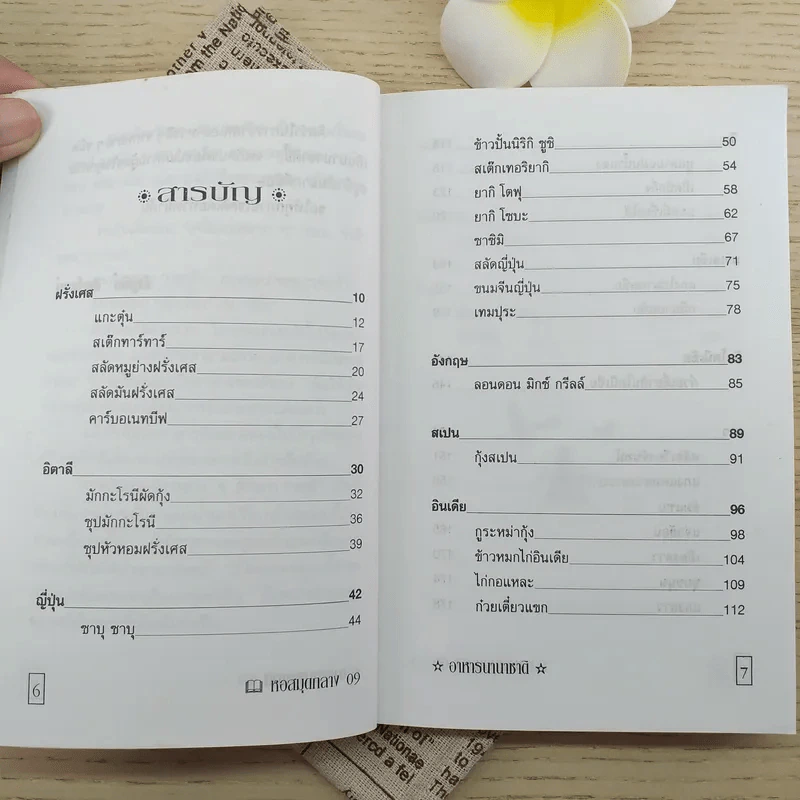 สารบัญ
ฝรั่งเศส 10
แกะตุ๋น 12
สเต๊กทาร์ทาร์ 17
สลัดหมูย่างฝรั่งเศส 20
สลัดมันฝรั่งเศส 24
คาร์บอเนทบีฟ 27
อิตาลี 30
มักกะโรนีผัดกุ้ง 32
ซุปมักกะโรนี 36
ซุปหัวหอมฝรั่งเศส 39
ญี่ปุ่น 42
ชาบุ ชาบุ 44
6
หอสมุดกลาง 09
ข้าวปั้นนิริกิ ซูชิ 50
สเต๊กเทอริยากิ 54
ยากิ โตฟุ 58
ยากิ โซบะ 62
ซาซิมิ 67
สลัดญี่ปุ่น 71
ขนมจีนญี่ปุ่น 75
เทมปุระ 78
อังกฤษ 83
ลอนดอน มิกซ์ กริลล์ 85
สเปน 89
กุ้งสเปน 91
อินเดีย 96
กูระหม่ากุ้ง 98
ข้าวหมกไก่อินเดีย 104
ไก่กอแหละ 109
ก๋วยเตี๋ยวแขก 112
☆ อาหารนานาชาติ ☆
7